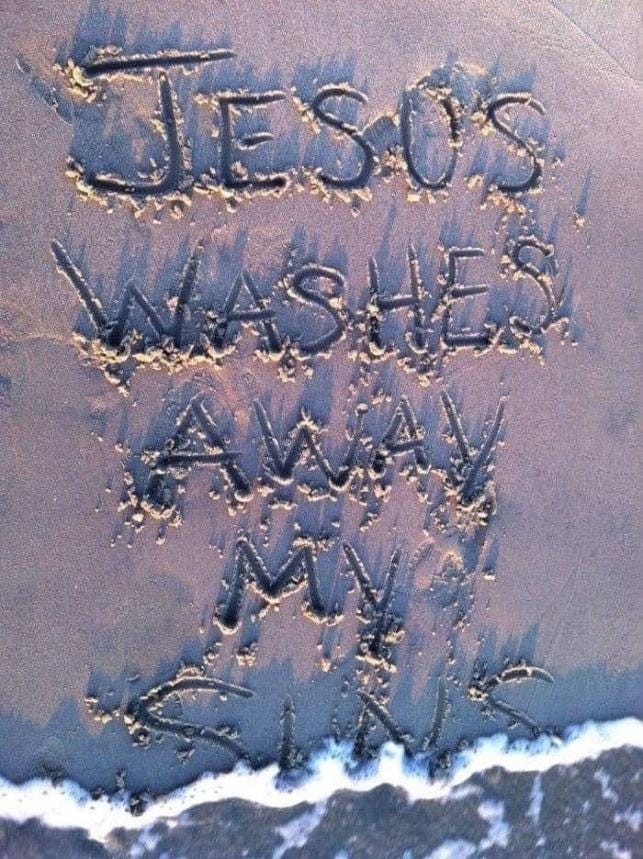 JESUS
WASHES
AWAY
MY
SINS